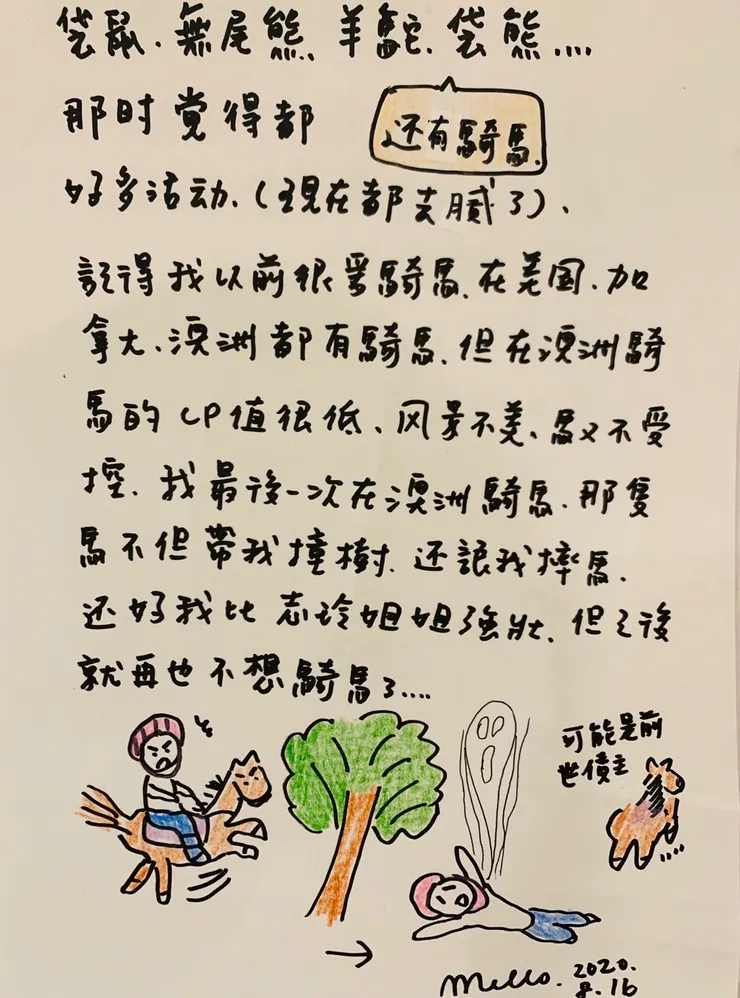 袋鼠、無尾熊、羊駝、袋熊....
那时覚得都
还有騎馬、
好多活动、(現在都去膩了)、
記得我以前很愛騎馬、在美国、加
拿大、澳洲都有騎馬、但在澳洲騎
馬的CP值很低、风景不美、馬又不受
控、我最後一次在澳洲騎馬、那隻
馬不但帶我撞樹、还讓我摔馬、
还好我比志玲姐姐強壯、但之後
就再也不想騎馬了....
可能是前
世債主
Mello. 2020.
8.16